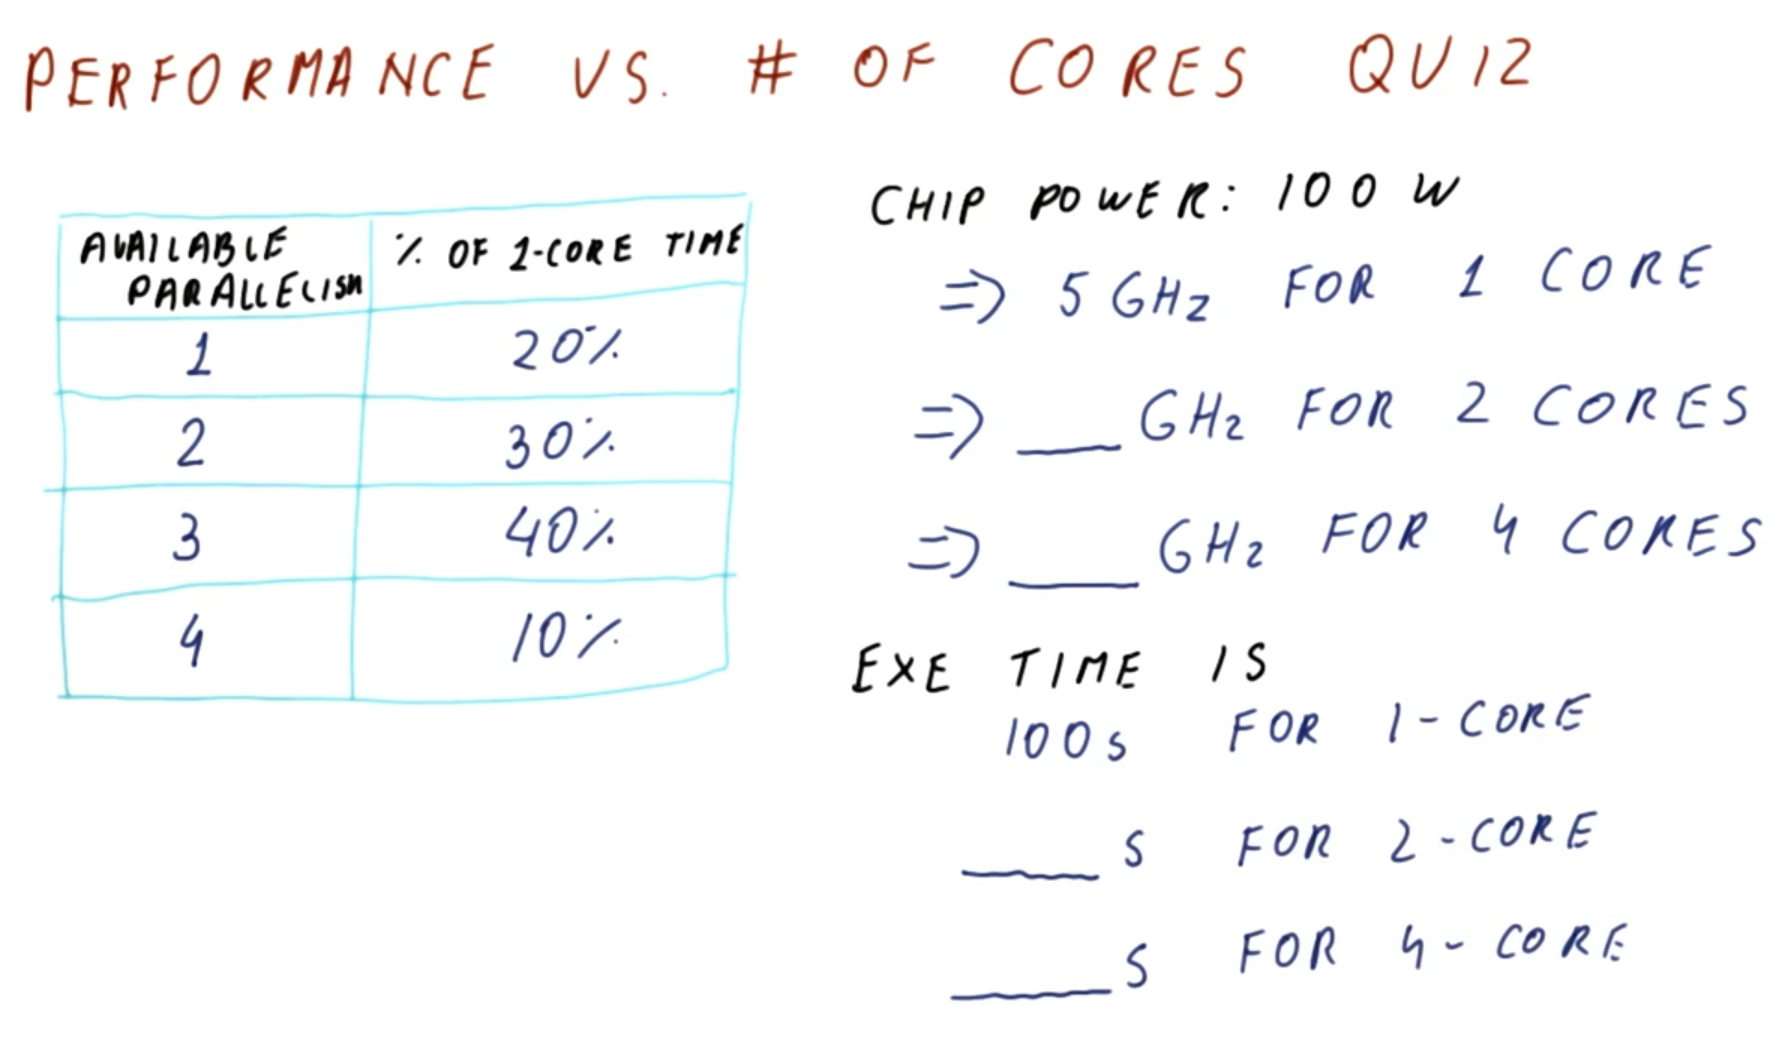 PERFORMANCE VS. # OF CORES QUIZ
AVAILABLE PARALLELISM % OF 1-CORE TIME
1 20%
2 30%
3 40%
4 10%
CHIP POWER: 100 W
=> 5 GHz FOR 1 CORE
=> ___ GHz FOR 2 CORES
=> ___ GHz FOR 4 CORES
EXE TIME IS
100s FOR 1-CORE
___ s FOR 2-CORE
___ s FOR 4-CORE